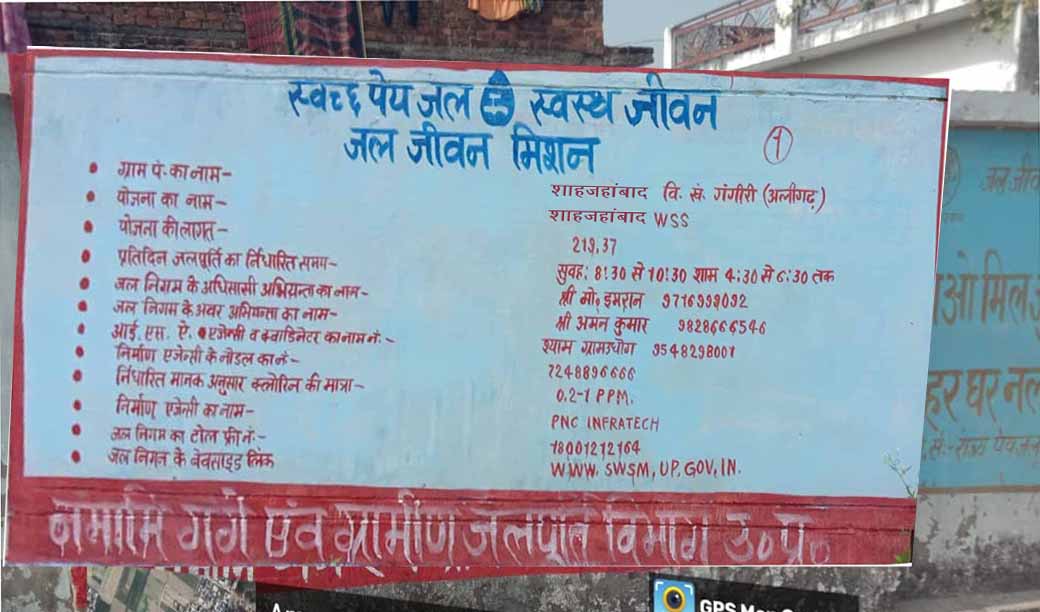 स्वच्छ पेय जल स्वस्थ जीवन
जल जीवन मिशन
1
ग्राम पं. का नाम- शाहजहांबाद वि. खं. गंगीरी (अलीगढ़)
योजना का नाम- शाहजहांबाद WSS
योजना की लागत- 219.37
प्रतिदिन जलपूर्ति का र्निधारित समय- सुवह: 8:30 से 10:30 शाम 4:30 से 6:30 तक
जल निगम के अधिसासी अभियन्ता का नाम- श्री मो. इमरान 9716999092
जल निगम के अवर अभियन्ता का नाम- श्री अमन कुमार 9828666546
आई. एस. ऐ. एजेन्सी व क्वाडिनेटर का नाम नं:- श्याम ग्रामउधोग 9548298001
निर्माण एजेन्सी के नोडल का नं- 7248896666
र्निधारित मानक अनुसार क्लोरिन की मात्रा- 0.2-1 PPM.
निर्माण एजेन्सी का नाम- PNC INFRATECH
जल निगम का टोल फ्री नं:- 18001212164
जल निगम के वेबसाइड लिंक WWW. SWSM, UP. GOV, IN.
नमामि गंगे एंव ग्रामीण जलपूर्ति विभाग उ० प्र०
जल जीव
ओ मिल
हर घर नल
GPS Map